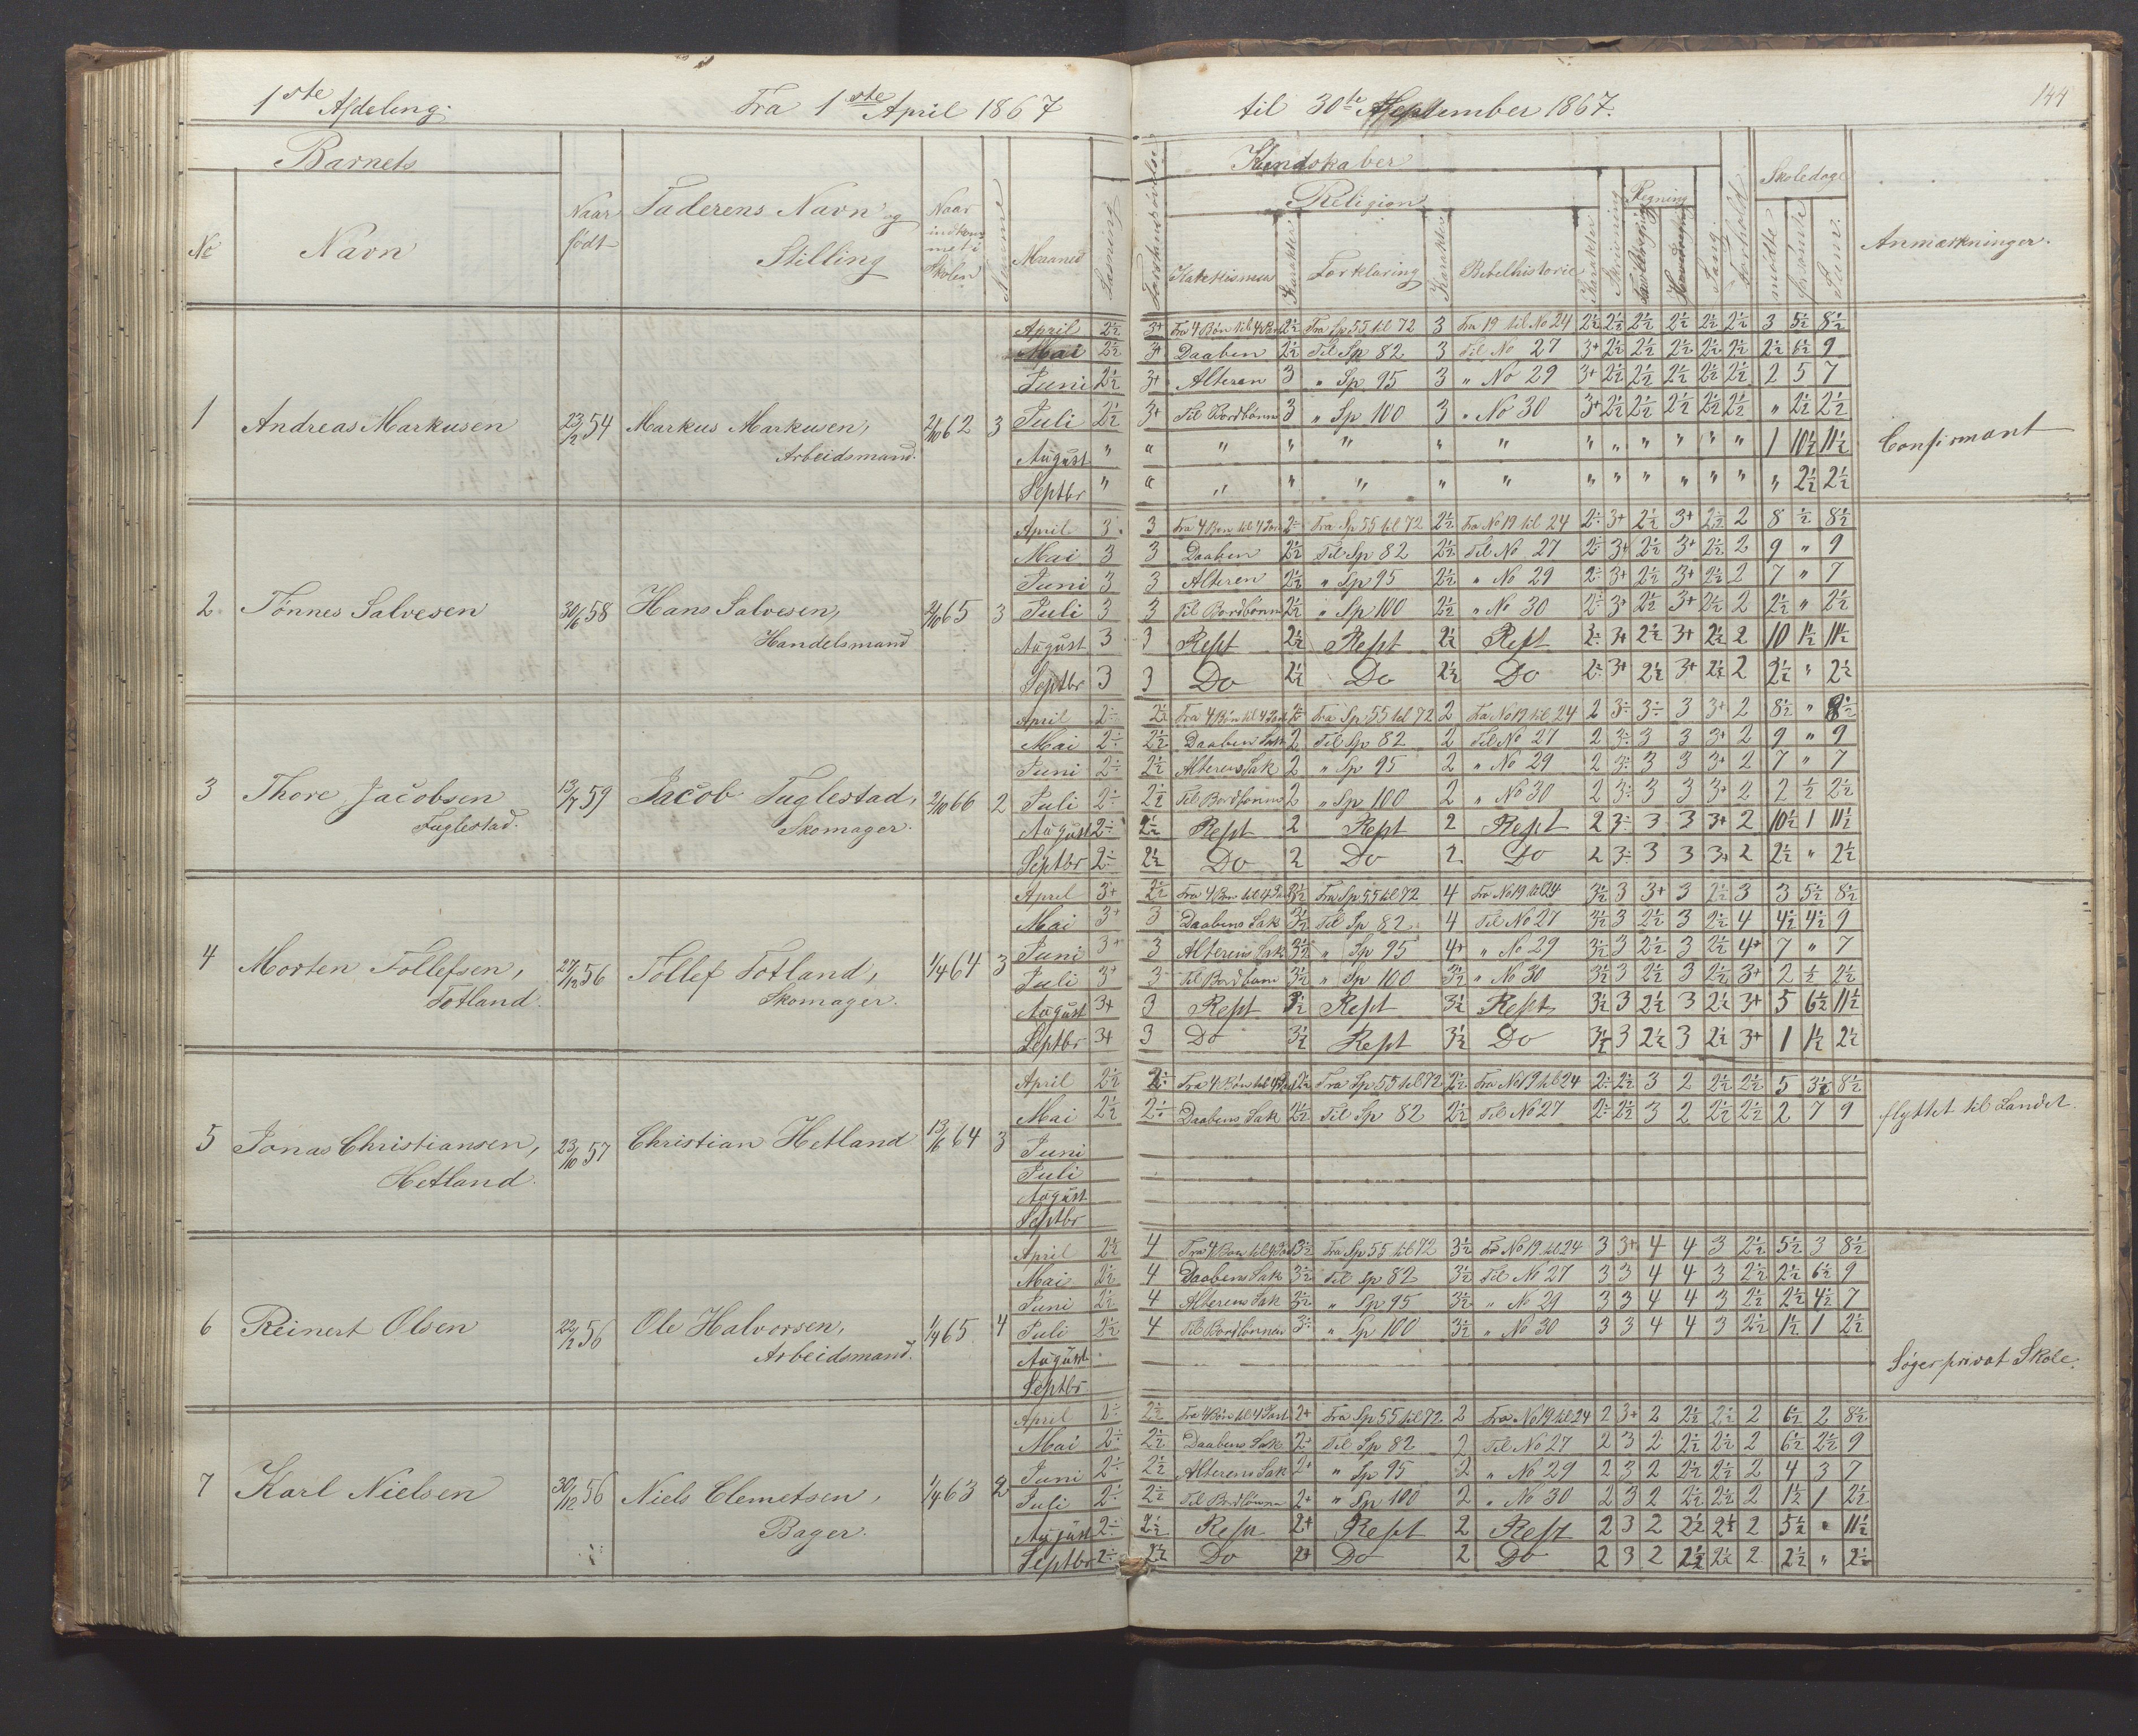 1ste Afdeling. Fra 1ste April 1867 til 30te September 1867. 144
Barnets Kundskaber Skoledage
Religion Regning
No Navn Naar født Faderens Navn og Stilling Naar indkommet i Skolen Maaned Læsning Katekismus Karakter Forklaring Karakter Bibelhistorie Karakter Skrivning Tavleregning Hovedregning Sang Forhold mødte forsømte Sum. Anmærkninger.
1 Andreas Markusen 23/2 54 Markus Markusen, Arbeidsmand. 2/10 62 3 Confirmant
April 2½ 3+ Fra 4 Bøn til 4 Part 2½ Fra Sp 55 til 72 3 Fra 19 til No 24 2½ 2½ 2½ 2½ 2½ 2½ 3 5½ 8½
Mai 2½ 3+ Daaben 2½ Til Sp 82 3 Til No 27 3+ 2½ 2½ 2½ 2½ 2½ 2½ 6½ 9
Juni 2½ 3+ Alteren 3 " Sp 95 3 " No 29 3+ 2½ 2½ 2½ 2½ 2½ 2 5 7
Juli 2½ 3+ Til Bordbønn 3 " Sp 100 3 " No 30 3+ 2½ 2½ 2½ 2½ 2½ " 2½ 2½
August " " " " " " " " " " " " " 1 10½ 11½
Septbr " " " " " " " " " " " " " " 2½ 2½
2 Tønnes Salvesen 30/6 58 Hans Salvesen, Handelsmand 2/10 65 3
April 3 3 Fra 4 Bøn til 4 Part 2÷ Fra Sp 55 til 72 2½ Fra No 19 til 24 2÷ 3+ 2½ 3+ 2½ 2 8 ½ 8½
Mai 3 3 Daaben 2½ Til Sp 82 2½ Til No 27 2÷ 3+ 2½ 3+ 2½ 2 9 " 9
Juni 3 3 Alteren 2½ " Sp 95 2½ " No 29 2÷ 3+ 2½ 3+ 2½ 2 7 " 7
Juli 3 3 Til Bordbønn 2½ " Sp 100 2½ " No 30 2÷ 3+ 2½ 3+ 2½ 2 2½ " 2½
August 3 3 Rept 2½ Rept 2½ Rept 2÷ 3+ 2½ 3+ 2½ 2 10 1½ 11½
Septbr 3 3 Do 2½ Do 2½ Do 2÷ 3+ 2½ 3+ 2½ 2 2½ " 2½
3 Thore Jacobsen Fuglestad. 13/7 59 Jacob Fuglestad, Skomager. 2/10 66 2
April 2÷ 2½ Fra 4 Bøn til 4 Part 2÷ Fra Sp 55 til 72 2 Fra No 19 til 24 2 3÷ 3÷ 3 3+ 2 8½ " 8½
Mai 2÷ 2½ Daaben Sak 2 Til Sp 82 2 Til No 27 2 3÷ 3 3 3+ 2 9 " 9
Juni 2÷ 2½ Alterens Sak 2 " Sp 95 2 " No 29 2 3÷ 3 3 3+ 2 7 " 7
Juli 2÷ 2½ Til Bordbønnen 2 " Sp 100 2 " No 30 2 3÷ 3 3 3+ 2 2 ½ 2½
August 2÷ 2½ Rept 2 Rept 2 Rept 2 3÷ 3 3 3+ 2 10½ 1 11½
Septbr 2÷ 2½ Do 2 Do 2 Do 2 3÷ 3 3 3+ 2 2½ " 2½
4 Morten Tollefsen, Totland. 27/12 56 Tollef Totland, Skomager. 1/4 64 3
April 3+ 2½ Fra 4 Bøn til 4 Part 3½ Fra Sp 55 til 72 4 Fra No 19 til 24 3½ 3 3+ 3 2½ 3 3 5½ 8½
Mai 3+ 3 Daabens Sak 3½ Til Sp 82 4 Til No 27 3½ 3 2½ 3 2½ 4 4½ 4½ 9
Juni 3+ 3 Alterens Sak 3½ " Sp 95 4+ " No 29 3½ 3 2½ 3 2½ 4+ 7 " 7
Juli 3+ 3 Til Bordbønn 3½ " Sp 100 3½ " No 30 3½ 3 2½ 3 2½ 3+ 2 ½ 2½
August 3+ 3 Rept 3½ Rept 3½ Rept 3½ 3 2½ 3 2½ 3+ 5 6½ 11½
Septbr 3+ 3 Do 3½ Rept 3½ Do 3½ 3 2½ 3 2½ 3+ 1 1½ 2½
5 Jonas Christiansen, Hetland. 23/10 57 Christian Hetland 13/6 64 3 flyttet til Landet
April 2½ 2÷ Fra 4 Bøn til 4 Part 2½ Fra Sp 55 til 72 2½ Fra No 19 til 24 2÷ 2½ 3 2 2½ 2½ 5 3½ 8½
Mai 2½ 2÷ Daabens Sak 2½ Til Sp 82 2½ Til No 27 2÷ 2½ 3 2 2½ 2½ 2 7 9
Juni
Juli
August
Septbr
6 Reinert Olsen 22/2 56 Ole Halvorsen, Arbeidsmand. 1/4 65 4 Søger privat Skole.
April 2½ 4 Fra 4 Bøn til 4 Part 3½ Fra Sp 55 til 72 3½ Fra No 19 til 24 3 3+ 4 4 3 2½ 5½ 3 8½
Mai 2½ 4 Daabens Sak 3½ Til Sp 82 3½ Til No 27 3 3 4 4 3 2½ 2½ 6½ 9
Juni 2½ 4 Alterens Sak 3½ " Sp 95 3½ " No 29 3 3 4 4 3 2½ 2½ 4½ 7
Juli 2½ 4 Til Bordbønnen 3÷ " Sp 100 3½ " No 30 3 3 4 4 3 2½ 1½ 1 2½
August
Septbr
7 Karl Nielsen 30/12 56 Niels Clemetsen, Bager. 1/4 63 2
April 2÷ 2½ Fra 4 Bøn til 4 Part 2+ Fra Sp 55 til 72 2 Fra No 19 til 24 2 3+ 2 2½ 2½ 2 6½ 2 8½
Mai 2÷ 2½ Daabens Sak 2+ Til Sp 82 2 Til No 27 2 3 2 2½ 2½ 2 6½ 2½ 9
Juni 2÷ 2½ Alterens Sak 2+ " Sp 95 2 " No 29 2 3 2 2½ 2½ 2 4 3 7
Juli 2÷ 2½ Til Bordbønnen 2+ " Sp 100 2 " No 30 2 3 2 2½ 2½ 2 1½ 1 2½
August 2÷ 2½ Rept 2+ Rept 2 Rept 2 3 2 2½ 2½ 2 5½ " 11½
Septbr 2÷ 2½ Do 2+ Do 2 Do 2 3 2 2½ 2½ 2 2½ " 2½